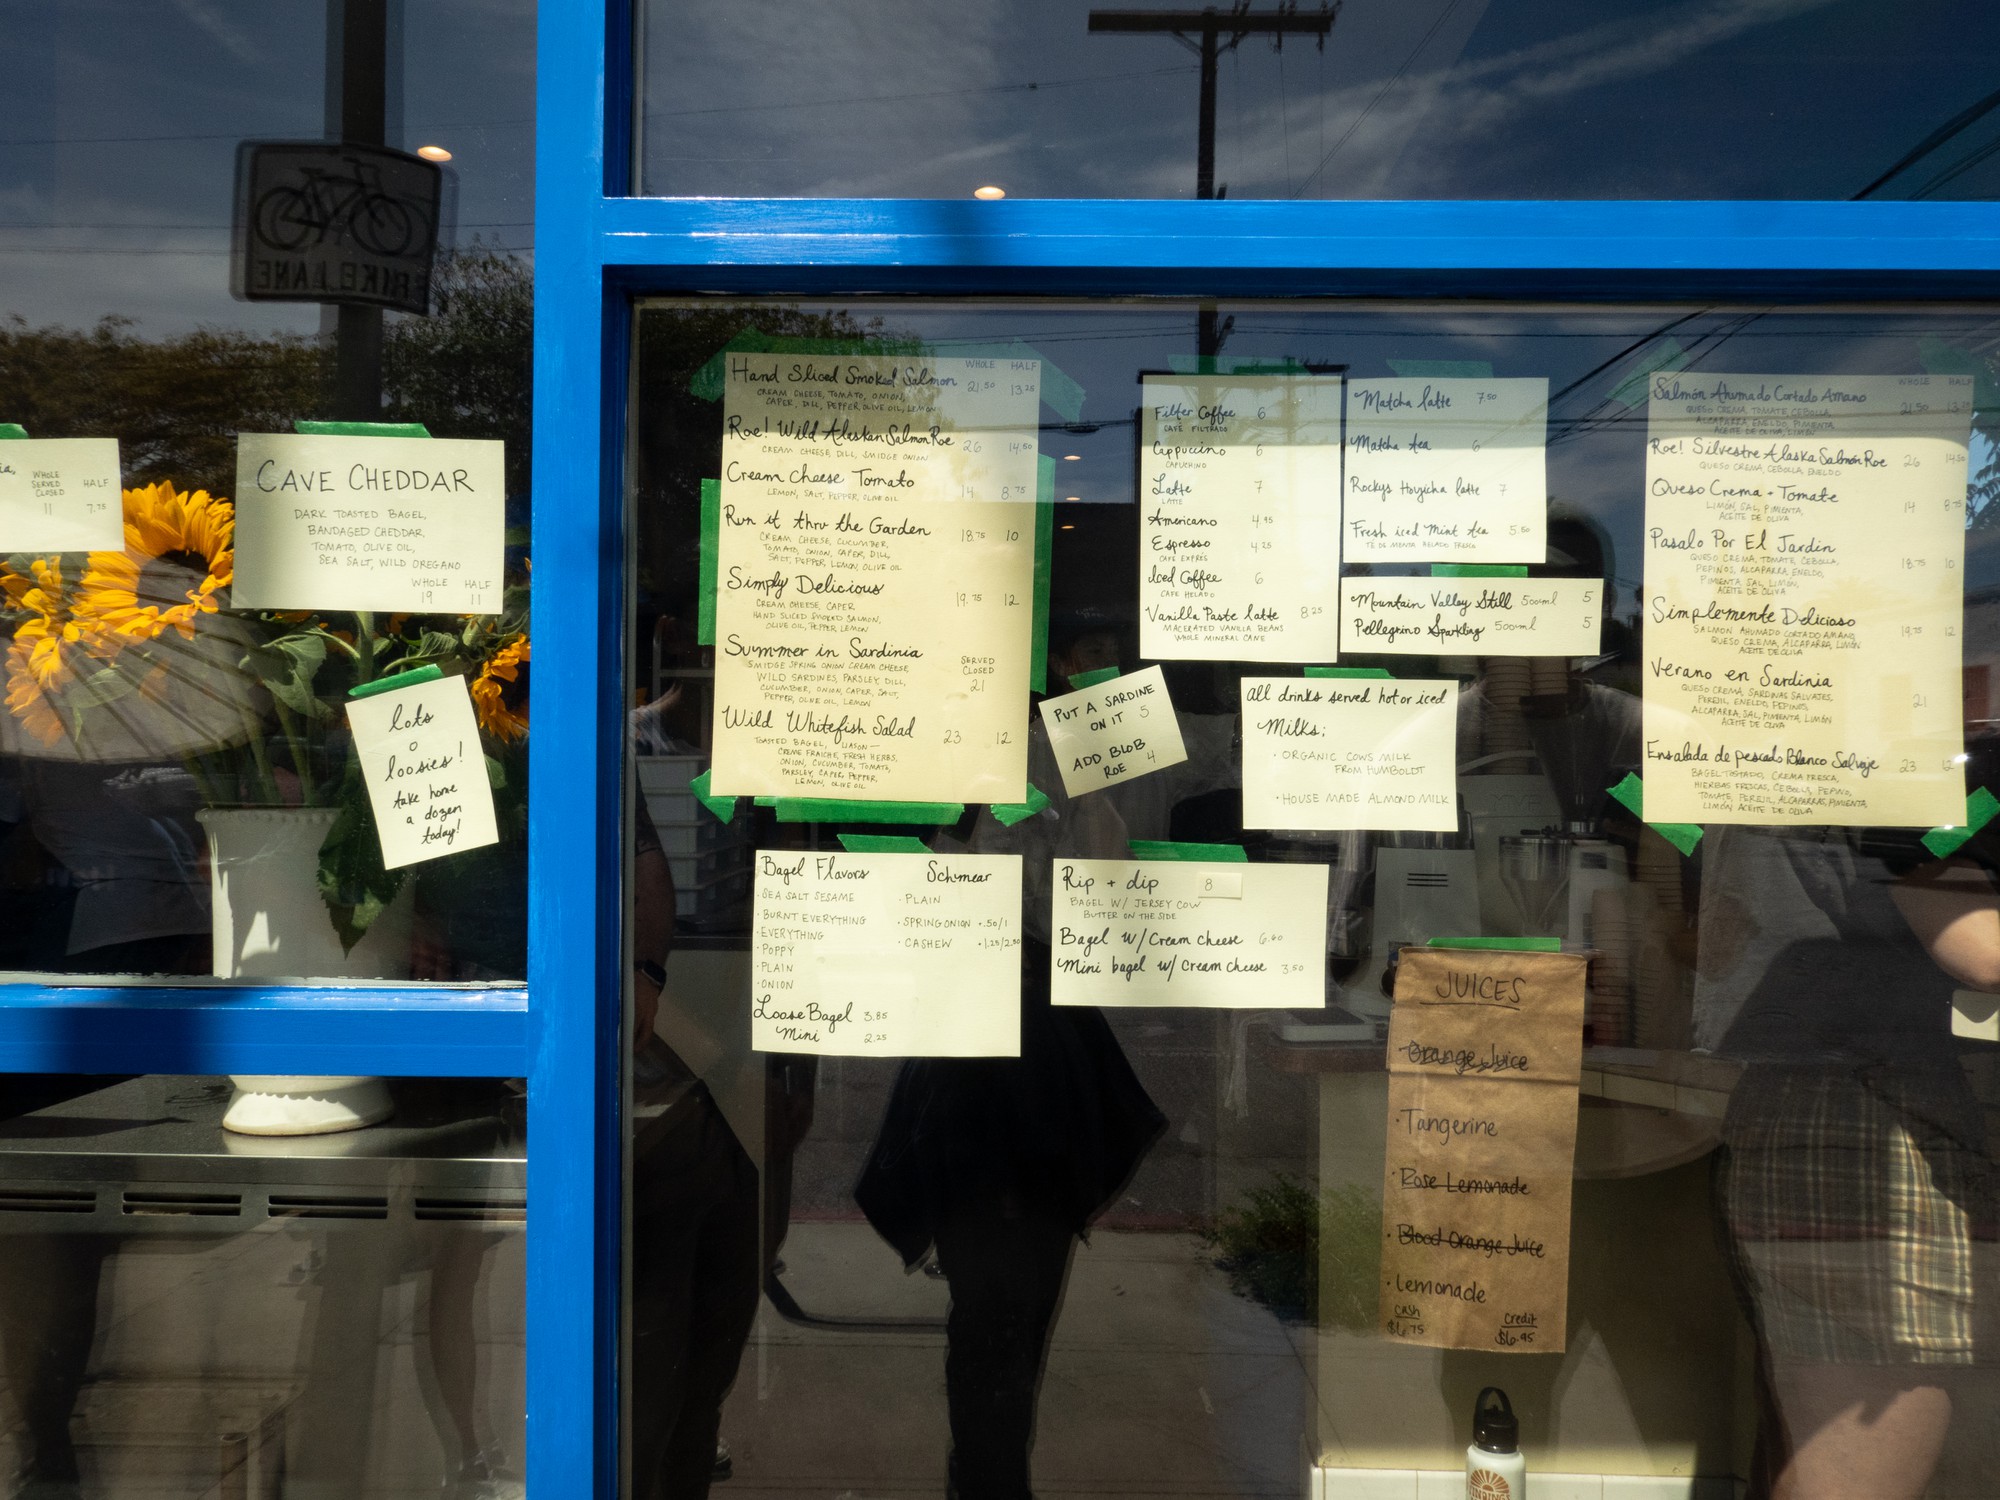 BIKE LANE
WHOLE
SERVED
CLOSED
HALF
11 7.75
CAVE CHEDDAR
DARK TOASTED BAGEL,
BANDAGED CHEDDAR,
TOMATO, OLIVE OIL,
SEA SALT, WILD OREGANO
WHOLE HALF
19 11
lots
o
loosies!
take home
a dozen
today!
WHOLE HALF
Hand Sliced Smoked Salmon 21.50 13.25
CREAM CHEESE, TOMATO, ONION,
CAPER, DILL, PEPPER, OLIVE OIL, LEMON
Roe! Wild Alaskan Salmon Roe 26 14.50
CREAM CHEESE, DILL, SMIDGE ONION
Cream cheese Tomato 14 8.75
LEMON, SALT, PEPPER, OLIVE OIL
Run it thru the Garden 18.75 10
CREAM CHEESE, CUCUMBER,
TOMATO, ONION, CAPER, DILL,
SALT, PEPPER, LEMON, OLIVE OIL
Simply Delicious 19.75 12
CREAM CHEESE, CAPER
HAND SLICED SMOKED SALMON,
OLIVE OIL, PEPPER, LEMON
Summer in Sardinia SERVED
CLOSED
21
SMIDGE SPRING ONION CREAM CHEESE,
WILD SARDINES, PARSLEY, DILL,
CUCUMBER, ONION, CAPER, SALT,
PEPPER, OLIVE OIL, LEMON
Wild Whitefish Salad 23 12
TOASTED BAGEL, LIASON—
CREME FRAICHE, FRESH HERBS,
ONION, CUCUMBER, TOMATO,
PARSLEY, CAPER, PEPPER,
LEMON, OLIVE OIL
PUT A SARDINE
ON IT 5
ADD BLOB
ROE 4
Filter Coffee 6
CAFÉ FILTRADO
Cappuccino 6
CAPUCHINO
Latte 7
LATTE
Americano 4.95
Espresso 4.25
CAFE EXPRÉS
Iced Coffee 6
CAFE HELADO
Vanilla Paste latte 8.25
MACERATED VANILLA BEANS
WHOLE MINERAL CANE
Matcha latte 7.50
Matcha tea 6
Rockys Houjicha latte 7
Fresh iced Mint tea 5.50
TÉ DE MENTA HELADO FRESCO
Mountain Valley Still 500ml 5
Pellegrino Sparkling 500ml 5
All drinks served hot or iced
Milks:
· ORGANIC COWS MILK
FROM HUMBOLDT
· HOUSE MADE ALMOND MILK
WHOLE HALF
Salmón Ahumado Cortado Amano 21.50 13.25
QUESO CREMA, TOMATE, CEBOLLA,
ALCAPARRA, ENELDO, PIMENTA,
ACEITE DE OLIVA, LIMÓN
Roe! Silvestre Alaska Salmón Roe 26 14.50
QUESO CREMA, CEBOLLA, ENELDO
Queso Crema + Tomate 14 8.75
LIMÓN, SAL, PIMENTA,
ACEITE DE OLIVA
Pasalo Por El Jardin 18.75 10
QUESO CREMA, TOMATE, CEBOLLA,
PEPINOS, ALCAPARRA, ENELDO,
PIMIENTA, SAL, LIMÓN,
ACEITE DE OLIVA
Simplemente Delicioso 19.75 12
SALMON AHUMADO CORTADO AMANO,
QUESO CREMA, ALCAPARRA, LIMÓN
ACEITE DE OLIVA
Verano en Sardinia 21
QUESO CREMA, SARDINAS SALVAJES,
PEREJIL, ENELDO, PEPINO,
ALCAPARRA, SAL, PIMENTA, LIMÓN
ACEITE DE OLIVA
Ensalada de pescado Blanco Salvaje 23 12
BAGEL TOSTADO, CREMA FRESCA,
HIERBAS FRESCAS, CEBOLLA, PEPINO,
TOMATE, PEREJIL, ALCAPARRAS, PIMIENTA
LIMÓN ACEITE DE OLIVA
Bagel Flavors Schmear
· SEA SALT SESAME · PLAIN
· BURNT EVERYTHING · SPRING ONION +.50/1
· EVERYTHING · CASHEW +1.25/2.50
· POPPY
· PLAIN
· ONION
Loose Bagel 3.85
Mini 2.25
Rip + dip 8
BAGEL W/ JERSEY COW
BUTTER ON THE SIDE
Bagel w/ Cream cheese 6.60
Mini bagel w/ Cream cheese 3.50
JUICES
· Orange Juice
· Tangerine
· Rose Lemonade
· Blood Orange Juice
· Lemonade
Cash Credit
$6.75 $6.95